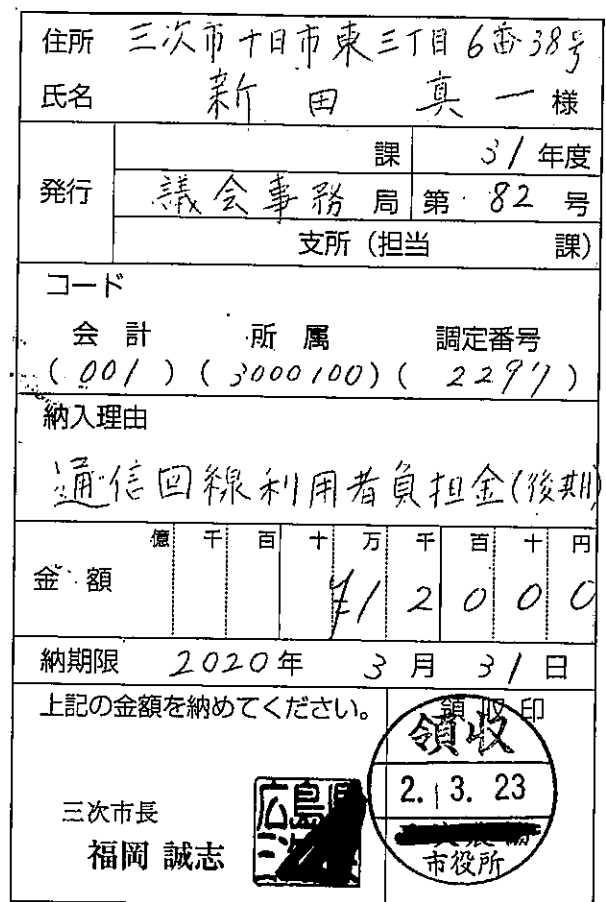 住所 三次市十日市東三丁目6番38号
氏名 新田 真一 様
課 31年度
発行 議会事務局 第82号
支所(担当 課)
コード
会計 所属 調定番号
(001)(3000100)(2297)
納入理由
通信回線利用者負担金(後期)
億 千 百 十 万 千 百 十 円
金額 ¥12000
納期限 2020年 3月 31日
上記の金額を納めてください。 領収印
領収
2. 3. 23
市役所
三次市長
福岡 誠志
広島県